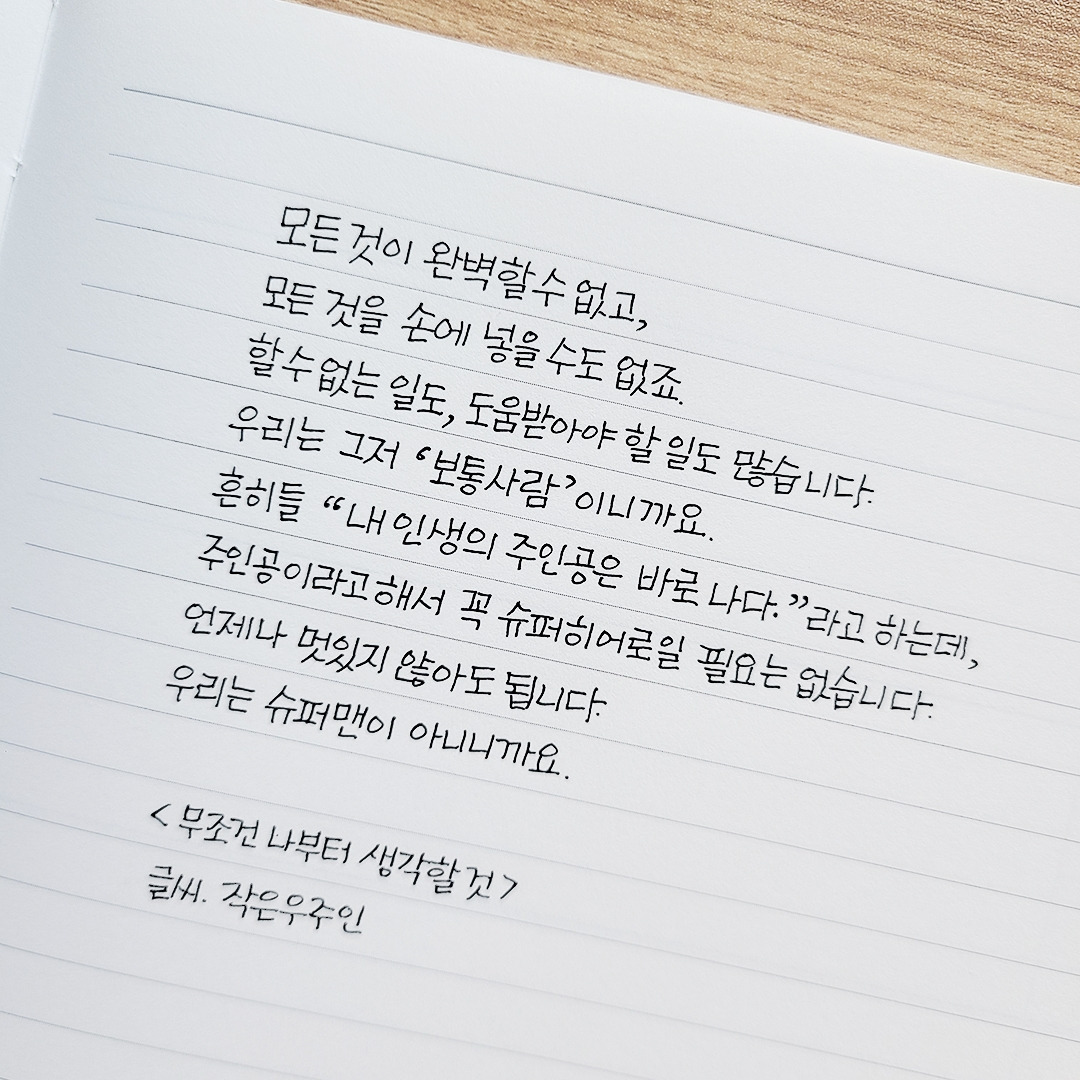 모든 것이 완벽할 수 없고,
모든 것을 손에 넣을 수도 없죠.
할 수 없는 일도, 도움받아야 할 일도 많습니다.
우리는 그저 ‘보통사람’이니까요.
흔히들 “내 인생의 주인공은 바로 나다.”라고 하는데,
주인공이라고 해서 꼭 슈퍼히어로일 필요는 없습니다.
언제나 멋있지 않아도 됩니다.
우리는 슈퍼맨이 아니니까요.
<무조건 나부터 생각할 것>
글씨. 작은우주인